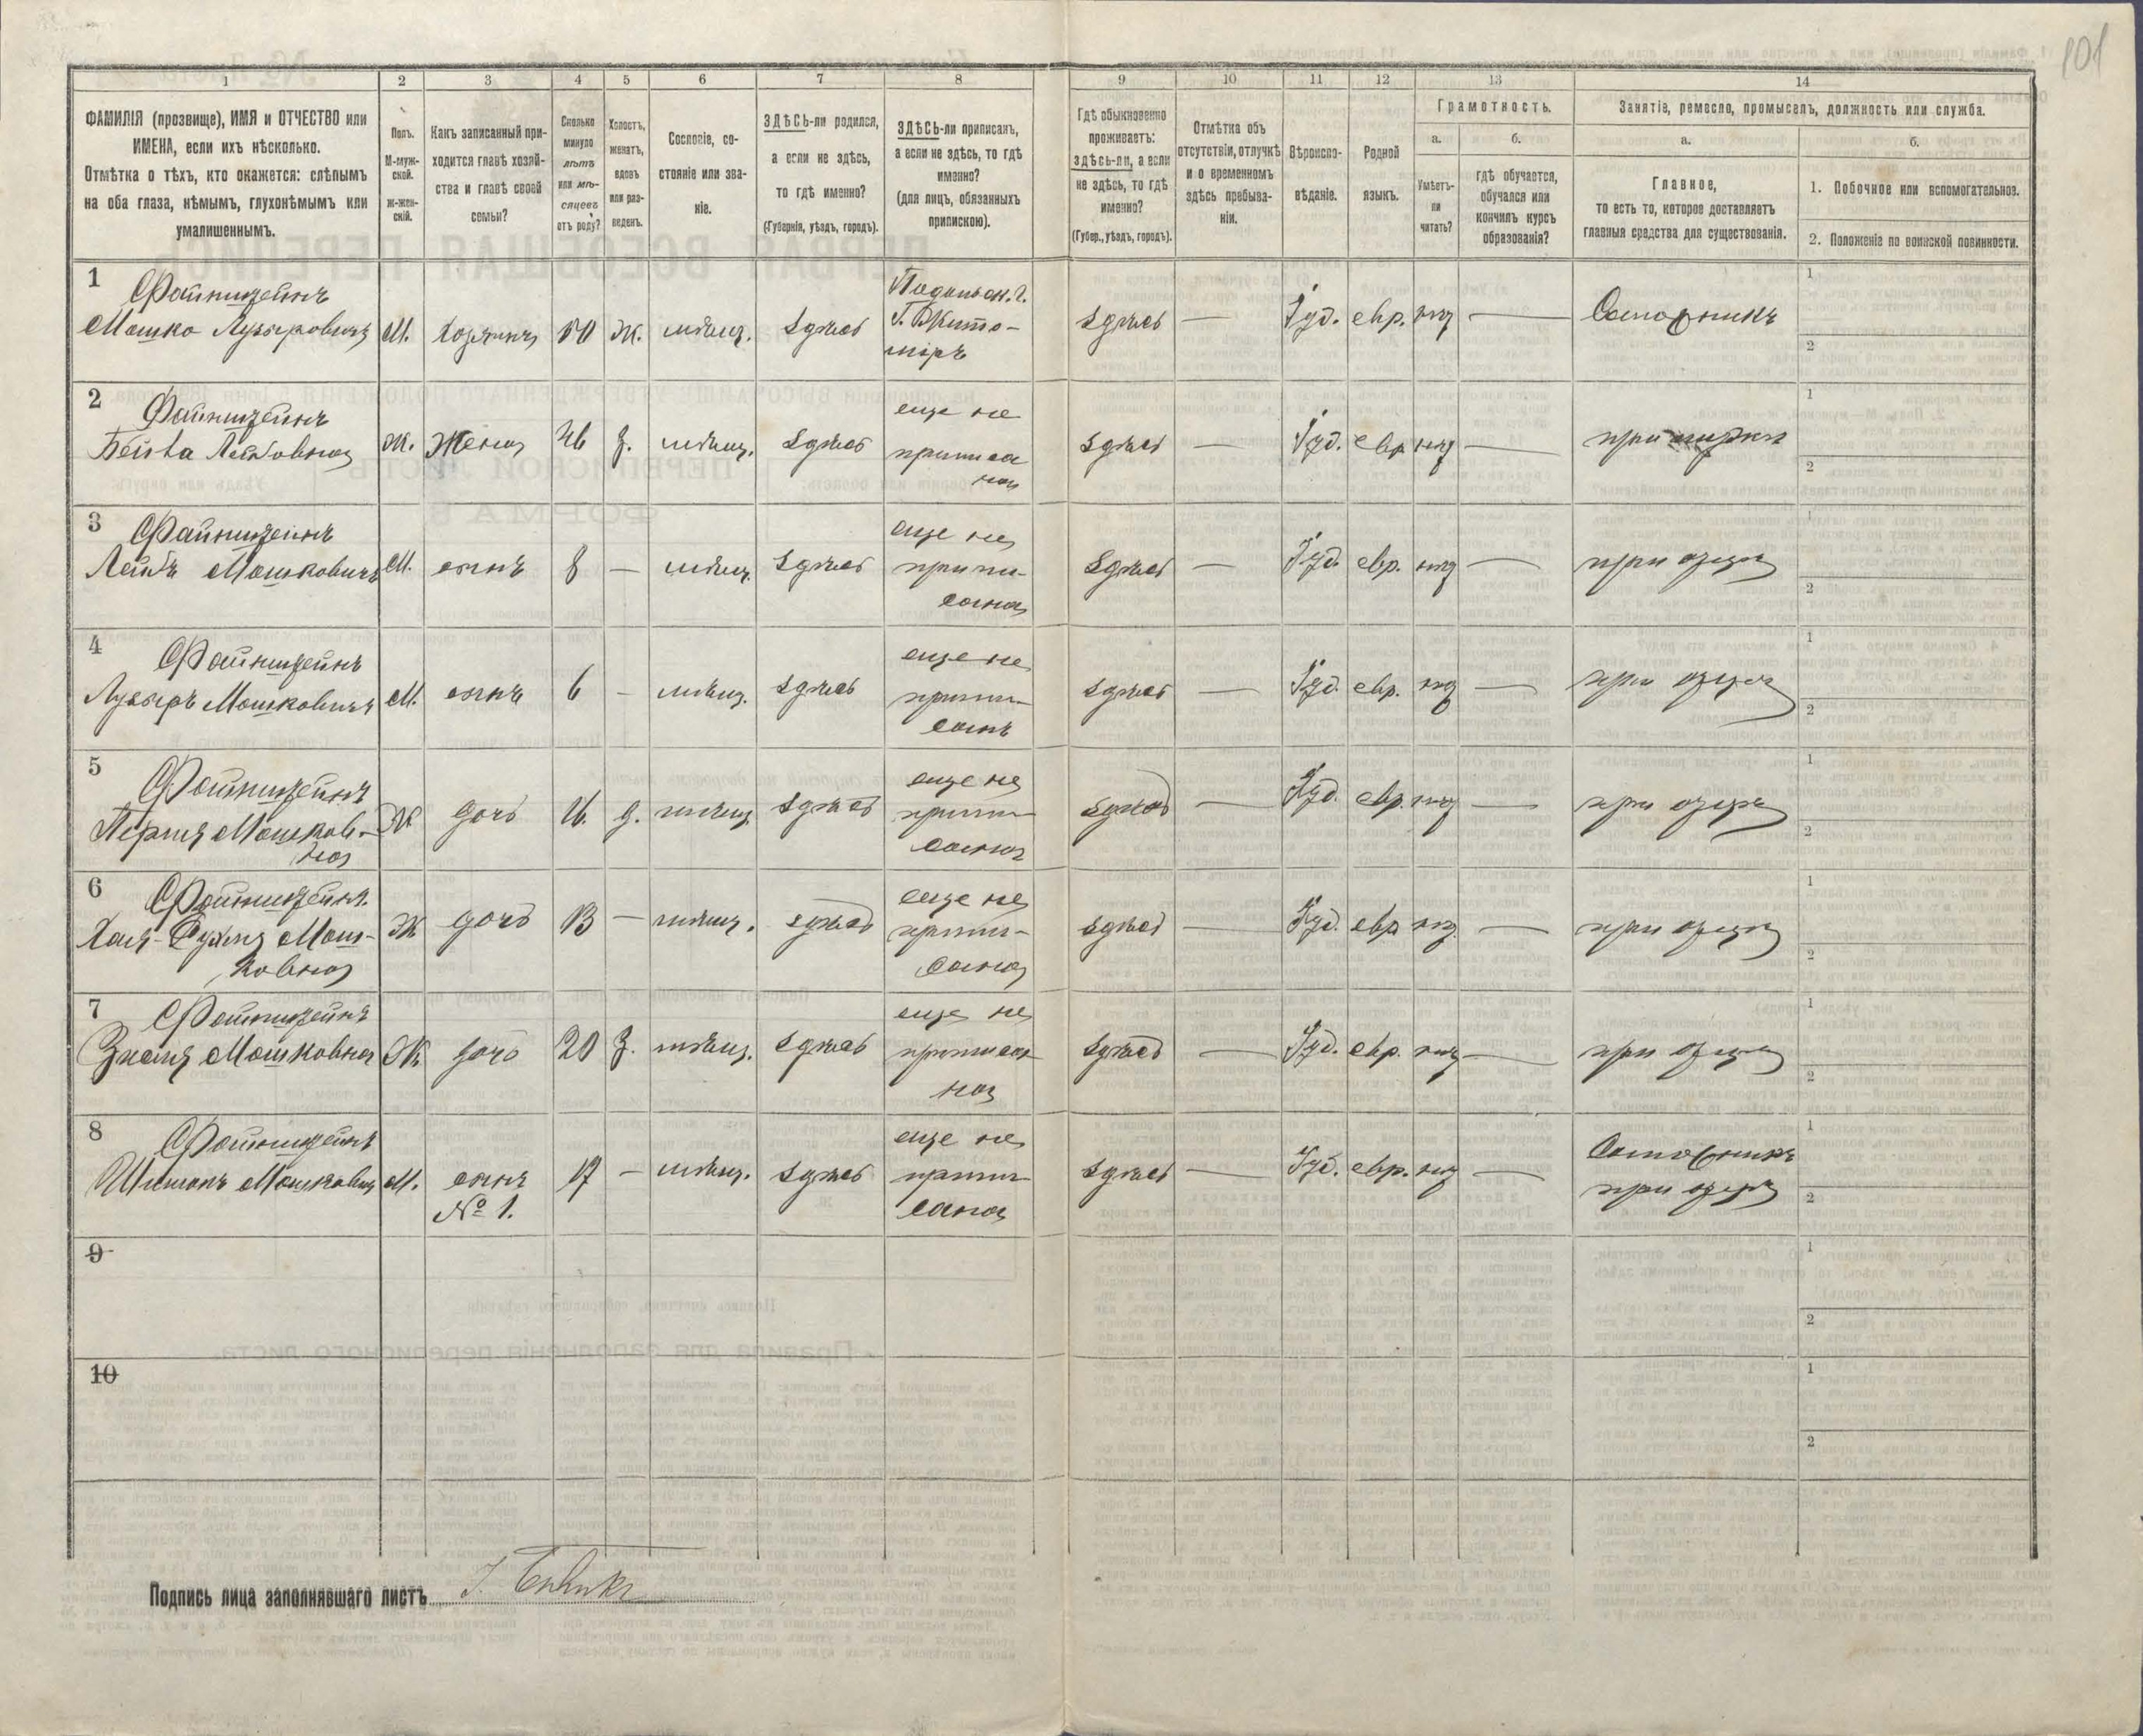 101
1
2
3
4
5
6
7
8
9
10
11
12
13
14
ФАМИЛІЯ (прозвище), ИМЯ и ОТЧЕСТВО или
ИМЕНА, если ихъ нѣсколько.
Отмѣтка о тѣхъ, кто окажется: слѣпымъ
на оба глаза, нѣмымъ, глухонѣмымъ или
умалишеннымъ.
Полъ.
М-муж-
ской.
ж-жен-
скій.
Какъ записанный при-
ходится главѣ хозяй-
ства и главѣ своей
семьи?
Сколько
минуло
лѣтъ
или мѣ-
сяцевъ
отъ роду?
Холостъ,
женатъ,
вдовъ
или раз-
веденъ.
Сословіе, со-
стояніе или зва-
ніе.
ЗДѢСЬ-ли родился,
а если не здѣсь,
то гдѣ именно?
(Губернія, уѣздъ, городъ).
ЗДѢСЬ-ли приписанъ,
а если не здѣсь, то гдѣ
именно?
(для лицъ, обязанныхъ
припискою).
Гдѣ обыкновенно
проживаетъ:
здѣсь-ли, а если
не здѣсь, то гдѣ
именно?
(Губер., уѣздъ, городъ).
Отмѣтка объ
отсутствіи, отлучкѣ
и о временномъ
здѣсь пребыва-
ніи.
Вѣроиспо-
вѣданіе.
Родной
языкъ.
Грамотность.
а.
Умѣетъ-
ли
читать?
б.
гдѣ обучается,
обучался или
кончилъ курсъ
образованія?
Занятіе, ремесло, промыселъ, должность или служба.
а.
Главное,
то есть то, которое доставляетъ
главныя средства для существованія.
б.
1. Побочное или вспомогательное.
2. Положеніе по воинской повинности.
1
Файнштейнъ
Мошко
М. Хозяинъ 50 ж. мѣщ. здѣсь
здѣсь — Іуд. евр. —
Сапожникъ
1
2
2
Файнштейнъ
Лейбовна
ж. жена 46 з. мѣщ. здѣсь
еще не
приписа
на
здѣсь — Іуд. евр —
1
2
3
Файнштейнъ
Лейбъ Мошковичъ
М. сынъ 8 — мѣщ. здѣсь
еще не
припи-
сана
здѣсь — Іуд. евр. —
при отцѣ
1
2
4
Файнштейнъ
Мошковичъ
М. сынъ 6 — мѣщ. здѣсь
еще не
припи-
санъ
здѣсь — Іуд. евр. —
при отцѣ
1
2
5
Файнштейнъ
Мошков-
на
Ж дочь д. мѣщ. здѣсь
еще не
припи-
сана
здѣсь — Іуд. евр. —
при отцѣ
1
2
6
Файнштейнъ
Хая- Мош-
ковна
Ж дочь 13 — мѣщ. здѣсь
еще не
припи-
сана
здѣсь — Іуд. евр —
при отцѣ
1
2
7
Файнштейнъ
Мошковна
Ж дочь 20 мѣщ. здѣсь
еще не
приписа-
на
здѣсь — Іуд. евр. —
при отцѣ
1
2
8
Файнштейнъ
Мошковичъ
М. сынъ 17 — мѣщ. здѣсь
№ 1.
еще не
припи-
сана
здѣсь — Іуд. евр. —
Сапожникъ
при отцѣ
1
2
9
1
2
10
1
2
Подпись лица заполнявшаго листъ